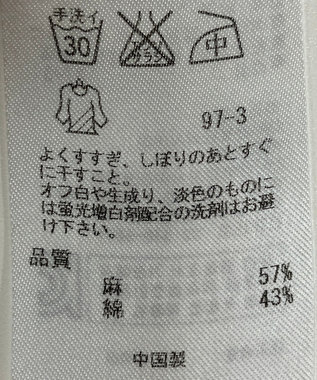 手洗イ
30
エンソ
サラシ
中
97-3
よくすすぎ、しぼりのあとすぐ
に干すこと。
オフ白や生成り、淡色のものに
は蛍光増白剤配合の洗剤はお避
け下さい。
品質
麻 57%
綿 43%
中国製